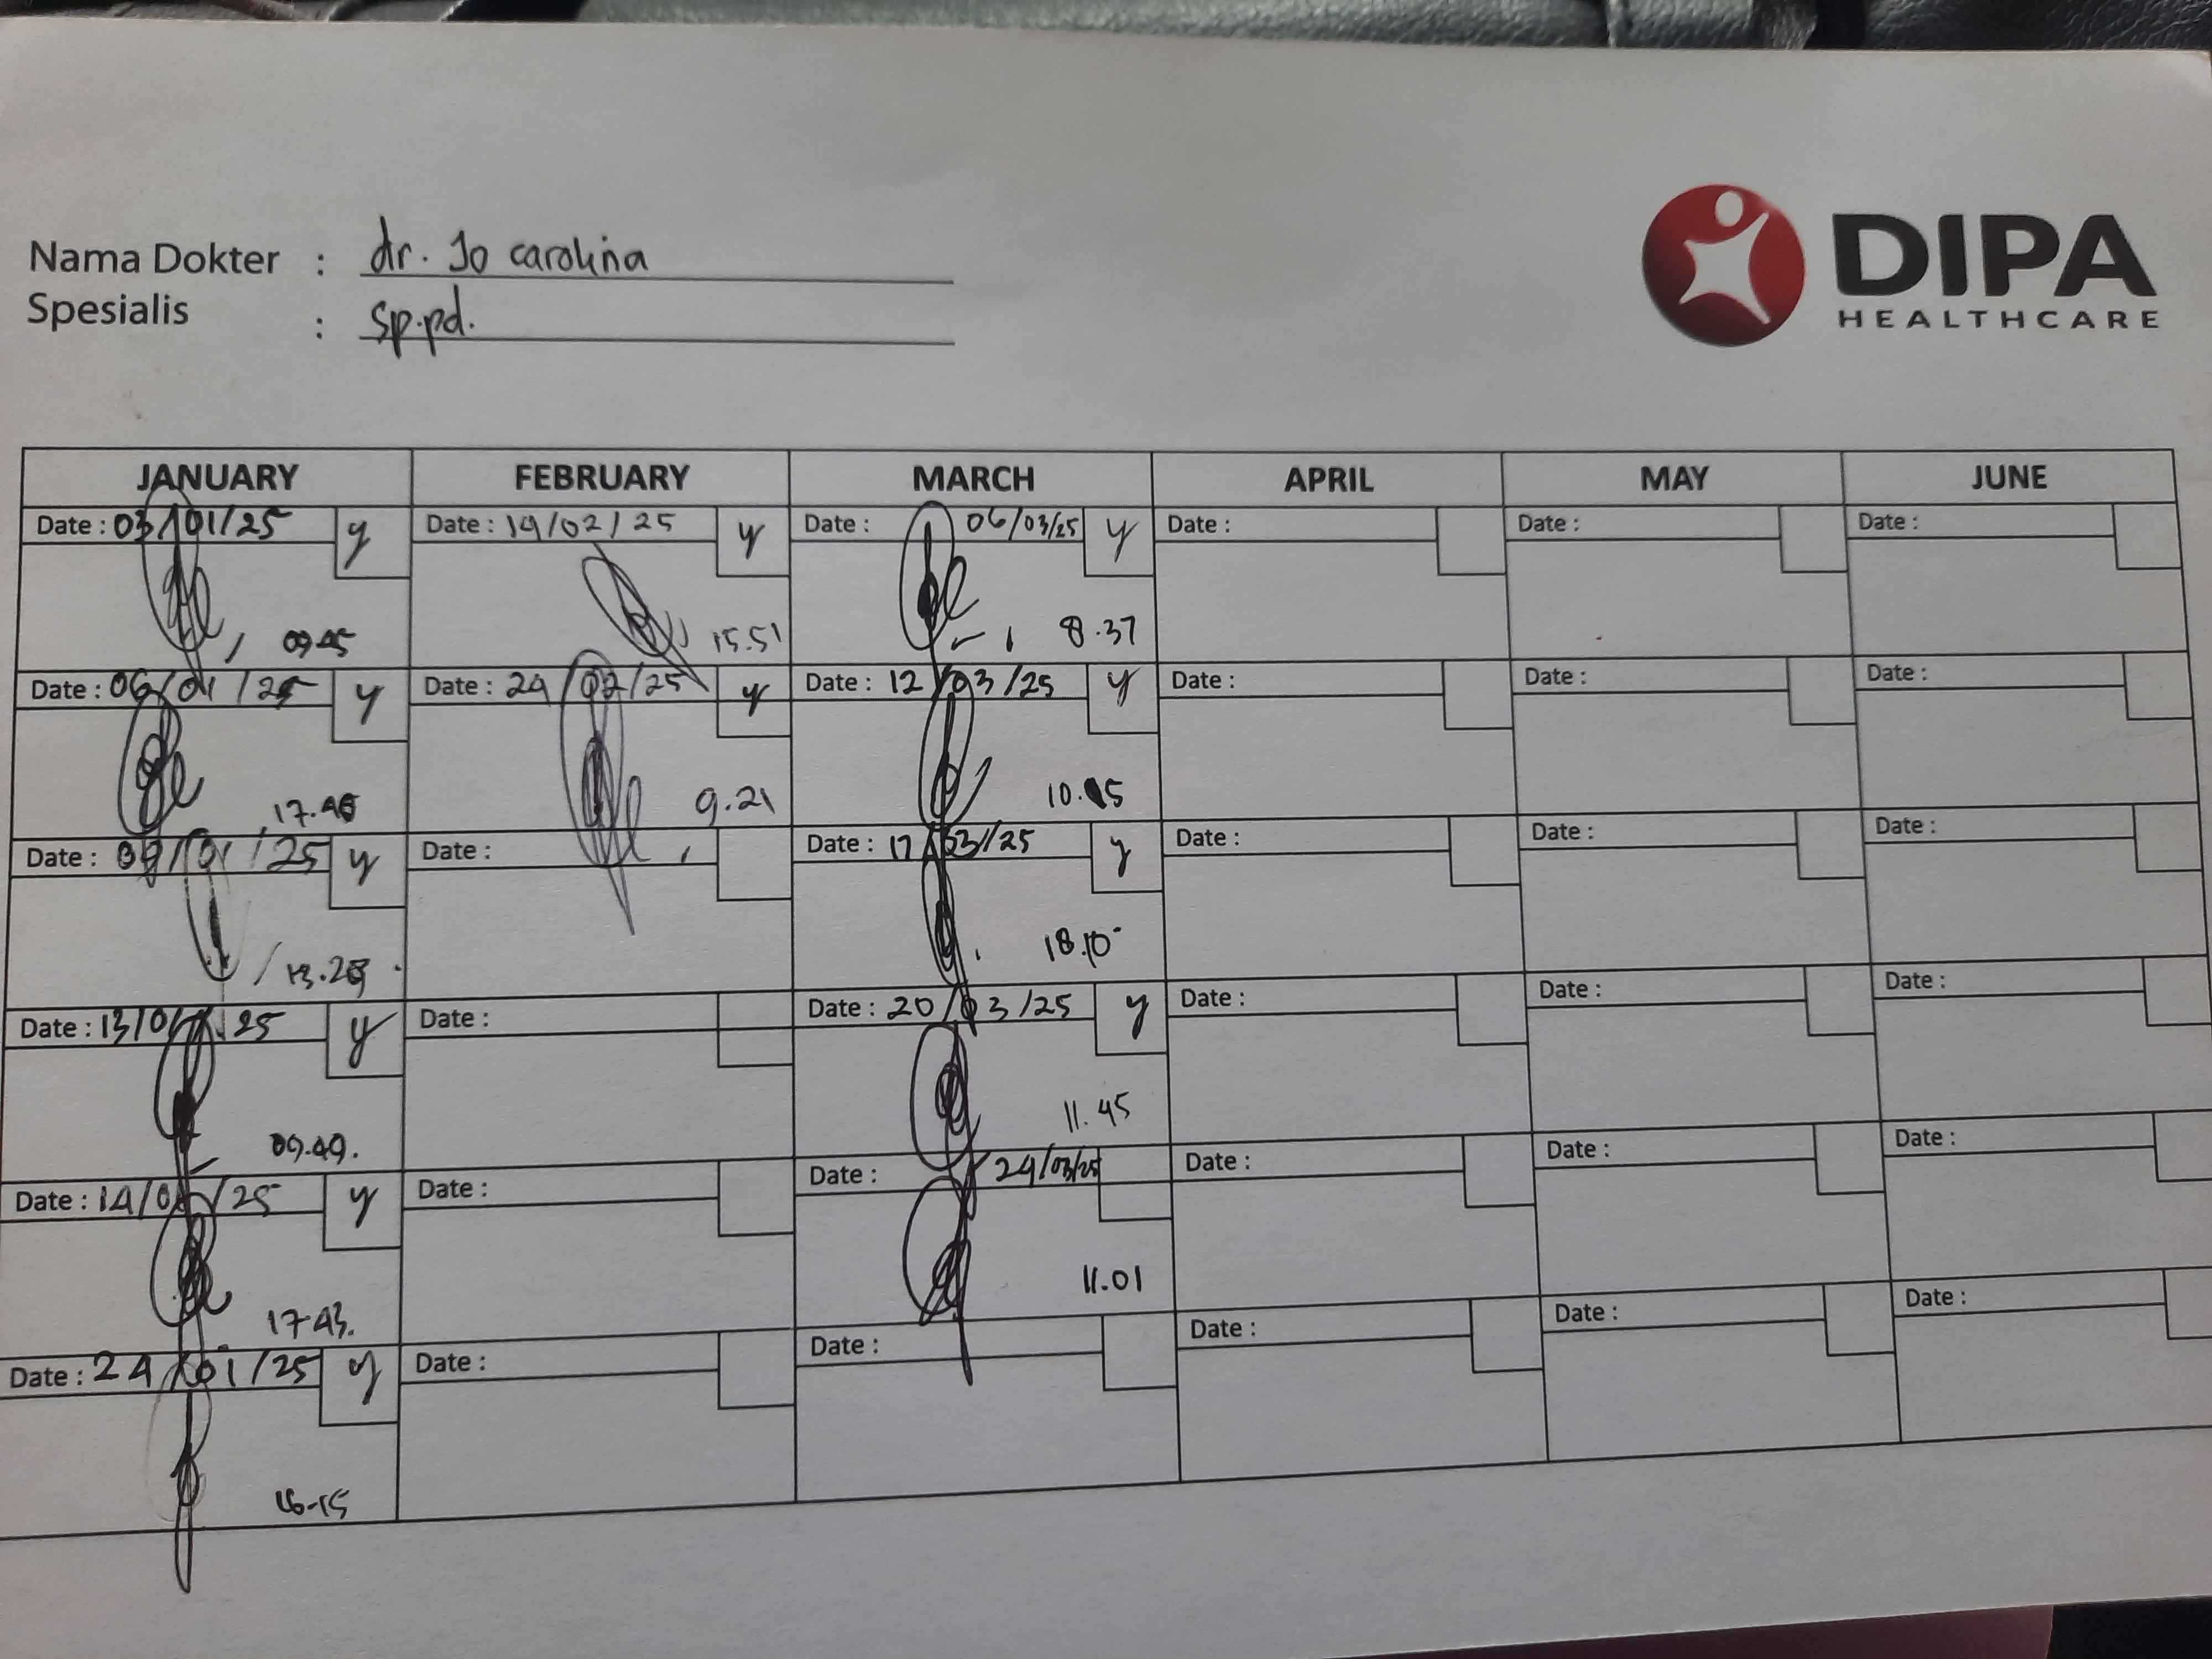 Nama Dokter : dr. Jo carolina
Spesialis : Sp.pd.
DIPA
HEALTHCARE
JANUARY FEBRUARY MARCH APRIL MAY JUNE
Date : 03/01/25 y Date : 19/02/25 y Date : 06/03/25 y Date : Date : Date :
09.45 15.51 8.37
Date : 06/01/25 y Date : 24/02/25 y Date : 12/03/25 y Date : Date : Date :
9.21 10.15
Date : 09/01/25 y Date : Date : 17/03/25 y Date : Date : Date :
18.10
Date : 13/01/25 y Date : Date : 20/03/25 y Date : Date : Date :
09.49. 11.45
Date : 14/01/25 y Date : Date : 24/03/25 Date : Date : Date :
17.43. 11.01
Date : 24/01/25 y Date : Date : Date : Date : Date :
16.15